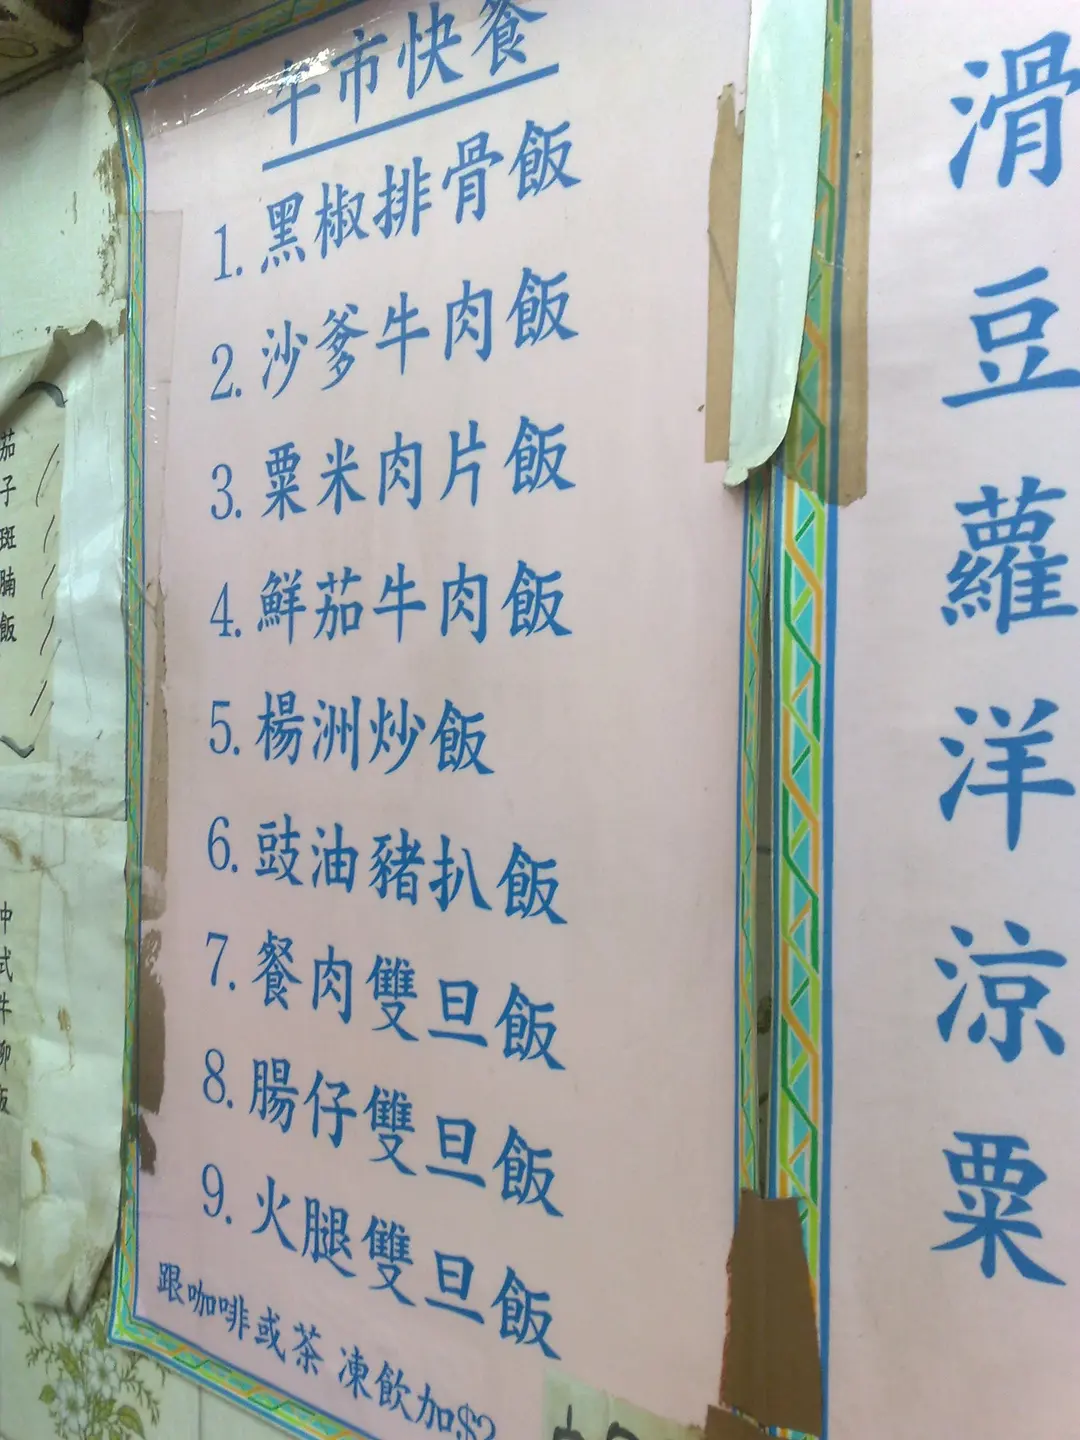 午市快餐
1. 黑椒排骨飯
2. 沙爹牛肉飯
3. 粟米肉片飯
4. 鮮茄牛肉飯
5. 楊洲炒飯
6. 豉油豬扒飯
7. 餐肉雙旦飯
8. 腸仔雙旦飯
9. 火腿雙旦飯
跟咖啡或茶 凍飲加$2
滑豆蘿洋涼粟
茄子斑腩飯
中式牛柳飯